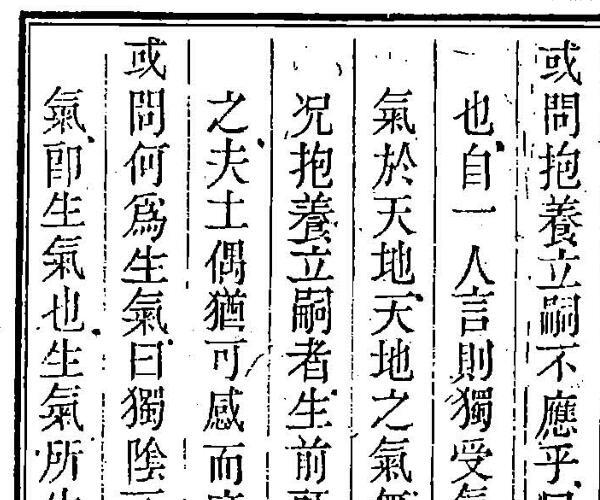 或問抱養立嗣不應乎
也自一人言則獨受氣
氣於天地天地之氣無
况抱養立嗣者生前
之夫土偶猶可感而
或問何爲生氣曰獨陰
氣卽生氣也生氣所